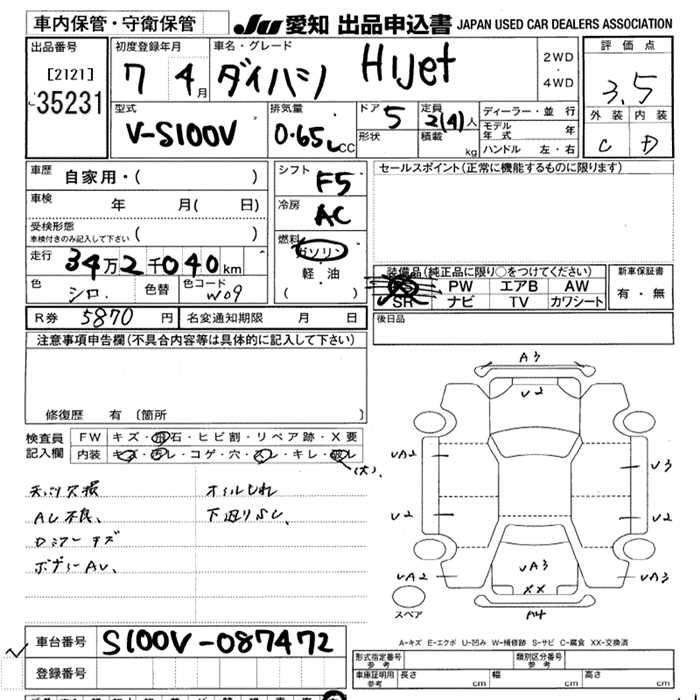 車内保管・守衛保管
JU 愛知 出品申込書 JAPAN USED CAR DEALERS ASSOCIATION
出品番号
[2121]
35231
初度登録年月
7 4月
車名・グレード
ダイハツ Hijet
2WD
・
4WD
評価点
3.5
外装 内装
C D
型式
V-S100V
排気量
0.65L CC
ドア 5
形状
定員 2(4)人
積載 kg
ディーラー・並行
モデル年式 年
ハンドル 左・右
車歴 自家用・( )
車検 年 月( 日)
受検形態
車検付きのみ記入して下さい ( )
走行 34万2千040km
色 シロ 色替 色コード W09
R券 5870円 名変通知期限 月 日
シフト F5
冷房 AC
燃料
ガソリン
・
軽・油
( )
セールスポイント(正常に機能するものに限ります)
装備品(純正品に限り○をつけてください)
PW エアB AW
SR ナビ TV カワシート
新車保証書
有・無
後日品
注意事項申告欄(不具合内容等は具体的に記入して下さい)
修復歴 有 〔箇所 〕
検査員記入欄
FW キズ・飛石・ヒビ割・リペア跡・X要
内装 キズ・汚レ・コゲ・穴・スレ・キレ・破レ
(大)
AC不良、
Dミラーキズ
ボデーAU、
オイルもれ
下廻りS、
A3
V2
UA2
V3
V2
V2
UA2
UA3
UA3
XX
A4
スペア
A-キズ E-エクボ U-凹み W-補修跡 S-サビ C-腐食 XX-交換済
車台番号 S100V-087472
登録番号
形式指定番号 参考
類別区分番号 参考
車庫証明用 参考 長さ cm 幅 cm 高さ cm